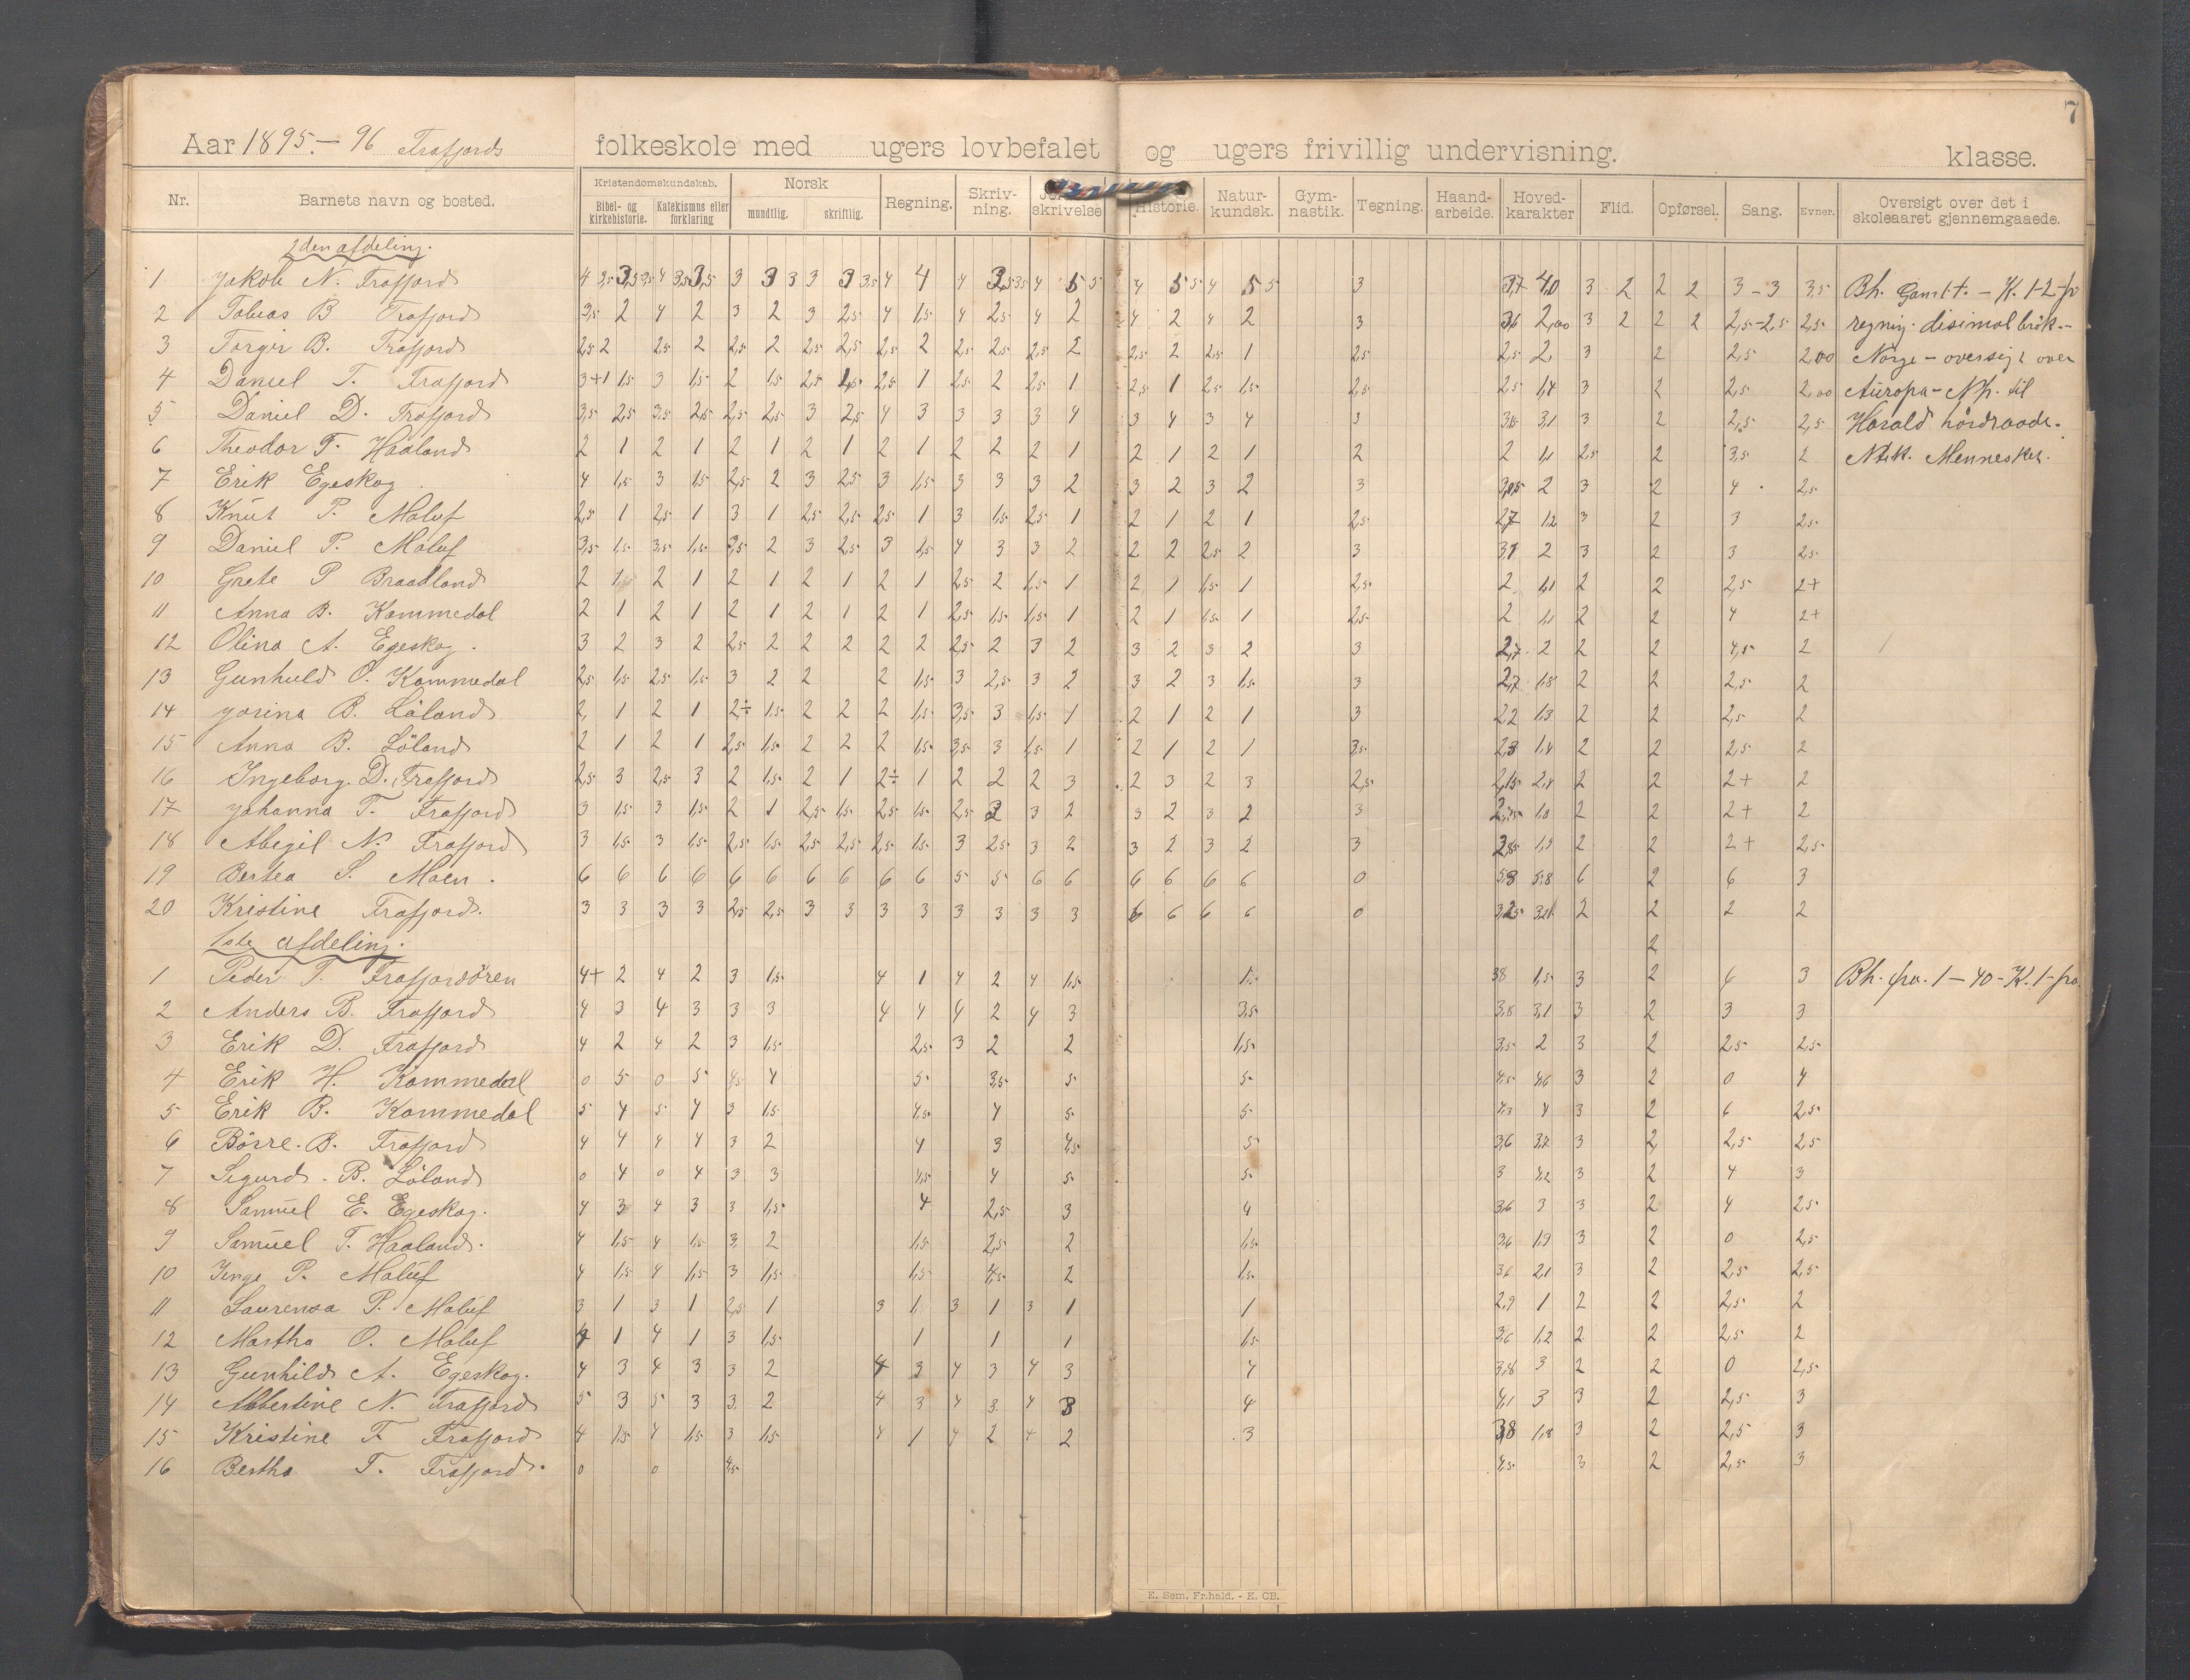 7
Aar 1895.- 96 Frafjords folkeskole med ugers lovbefalet og ugers frivillig undervisning. klasse.
Nr. Barnets navn og bosted. Kristendomskundskab. Bibel- og kirkehistorie. Katekismus eller forklaring Norsk mundtlig. skriftlig. Regning. Skriv-ning. skrivelse Historie. Natur-kundsk. Gym-nastik. Tegning. Haand-arbeide. Hoved-karakter Flid. Opførsel. Sang. Evner. Oversigt over det i skoleaaret gjennemgaaede.
2den afdeling.
1 Jakob N. Frafjord 3 3 2 2 2 3-3 3,5 Bh. Gamt. - K. 1-2-p
2 Tobias B Frafjord 3,5 2 4 2 3 2 3 2,5 4 1,5 4 2,5 4 2 4 2 4 2 3 3,6 2,00 3 2 2 2 2,5-2,5 2,5 regnig. disimal brök.-
3 Torgir B. Frafjord 2,5 2 2,5 2 2,5 2 2,5 2,5 2,5 2 2,5 2,5 2,5 2 2,5 2 2,5 1 2,5 2,5 2, 3 2 2,5 2,00 Norge - oversigt over
4 Daniel T. Frafjord 3+1 1,5 3 1,5 2 1,5 2,5 1,5 2,5 1 2,5 2 2,5 1 2,5 1 2,5 1,5 2,5 2,5 1,4 3 2 2,5 2,00 Auropa - Nh. til
5 Daniel D. Frafjord 3,5 2,5 3,5 2,5 2,5 2,5 3 2,5 4 3 3 3 3 4 3 4 3 4 3 3,6 3,1 3 2 2,5 2,5 Harald hördraade.
6 Theodor T. Haaland 2 1 2 1 2 1 2 1 2 1 2 2 2 1 2 1 2 1 2 2 1,1 2,5 2 3,5 2 Ntk. Mennesket.
7 Erik Egeskog. 4 1,5 3 1,5 2,5 2 3 2,5 3 1,5 3 3 3 2 3 2 3 2 3 3,05 2 3 2 4 2,5
8 Knut P. Maluf 2,5 1 2,5 1 3 1 2,5 2,5 2,5 1 3 1,5 2,5 1 2 1 2 1 2,5 2,7 1,2 3 2 3 2,5
9 Daniel P. Maluf 3,5 1,5 3,5 1,5 3,5 2 3 2,5 3 1,5 4 3 3 2 2 2 2,5 2 3 3,1 2 3 2 3 2,5
10 Grete P Braadland 2 1, 2 1 2 1 2 1 2 1 2,5 2 1,5 1 2 1 1,5 1 2,5 2 1,1 2 2 2,5 2+
11 Anna B. Kommedal 2 1 2 1 2 1 2 1 2 1 2,5 1,5 1,5 1 2 1 1,5 1 2,5 2 1,1 2 2 4 2+
12 Olina A. Egeskog. 3 2 3 2 2,5 2 2 2 2 2 2,5 2 3 2 3 2 3 2 3 2,7 2 2 2 4,5 2
13 Gunhuld O. Kommedal 2,5 1,5 2,5 1,5 3 2 2 2 1,5 3 2,5 3 2 3 2 3 1,5 3 2,7 1,8 2 2 2,5 2
14 Josina B. Löland 2, 1 2 1 2÷ 1,5 2 2 2 1,5 3,5 3 1,5 1 2 1 2 1 3 2,2 1,3 2 2 2,5 2
15 Anna B. Löland 2 1 2 1 2,5 1,5 2 2 2 1,5 3,5 3 1,5 1 2 1 2 1 3,5 2,3 1,4 2 2 2,5 2
16 Ingeborg. D. Frafjord 2,5 3 2,5 3 2 1,5 2 1 2÷ 1 2 2 2 3 2 3 2 3 2,5 2,15 2,4 2 2 2+ 2
17 Johanna T. Frafjord 3 1,5 3 1,5 2 1 2,5 1,5 2,5 1,5 2,5 2 3 2 3 2 3 2 3 2,75 1,8 2 2 2+ 2
18 Abegil N. Frafjord 3 1,5 3 1,5 2,5 1,5 2,5 2,5 2,5 1,5 3 2,5 3 2 3 2 3 2 3 2,85 1,9 2 2 2+ 2,5
19 Bertea S. Moen. 6 6 6 6 6 6 6 6 6 6 5 5 6 6 6 6 6 6 0 5,8 5,8 6 2 6 3
20 Kristine Frafjord. 3 3 3 3 2,5 2,5 3 3 3 3 3 3 3 3 6 6 6 6 0 2 2 2 2
1ste afdeling. 2
1 Peder T. Frafjordören 4+ 2 4 2 3 1,5 4 1 4 2 4 1,5 1, 3,8 1,5 3 2 6 3 Bh. fra. 1-40 - K. 1-fra
2 Anders B. Frafjord 4 3 4 3 3 3 4 4 4 2 4 3 3,5 3,8 3,1 3 2 3 3
3 Erik D. Frafjord 4 2 4 2 3 1,5 2,5 3 2 2 1,5 3,5 2 3 2 2,5 2,5
4 Erik H. Kommedal 0 5 0 5 4,5 4 5 3,5 5 5 4,5 4,6 3 2 0 4
5 Erik B. Kommedal 5 4 5 4 3 1,5 4,5 4 5 5 4,3 4 3 2 6 2,5
6 Börre. B. Frafjord 4 4 4 4 3 2 4 3 4,5 5 3,6 3,7 3 2 2,5 2,5
7 Sigurd. B. Löland 0 4 0 4 3 3 4,5 4 5 5 3 4,2 3 2 4 3
8 Samuel E. Egeskog. 4 3 4 3 3 1,5 4 2,5 3 4 3,6 3 3 2 4 2,5
9 Samuel T. Haaland. 4 1,5 4 1,5 3 2 1,5 2,5 2 1,5 3,6 1,9 3 2 0 2,5
10 Inge P. Maluf 4 1,5 4 1,5 3 1,5 1,5 4,5 2 1,5 3,6 2,1 3 2 2,5 2,5
11 Laurensa P. Maluf 3 1 3 1 2,5 1 3 1 3 1 3 1 1 2,9 1 2 2 2,5 2
12 Martha O. Maluf 4 1 4 1 3 1,5 1 1 1 1,5 3,6 1,2 2 2 2,5 2
13 Gunhild A. Egeskog. 4 3 4 3 3 2 4 3 4 3 4 3 4 3,8 3 2 2 0 2,5
14 Abbertine N. Frafjord 5 3 5 3 3 2 4 3 4 3 4 3 4 4,1 3 3 2 2,5 3
15 Kristine T. Frafjord 4 1,5 4 1,5 3 1,5 4 1 4 2 4 2 3 3,8 1,8 3 2 2,5 3
16 Bertha T. Frafjord. 0 0 4,5 4,5 3 2 2,5 3
E. Sem. Fr.hald. - E. CB.